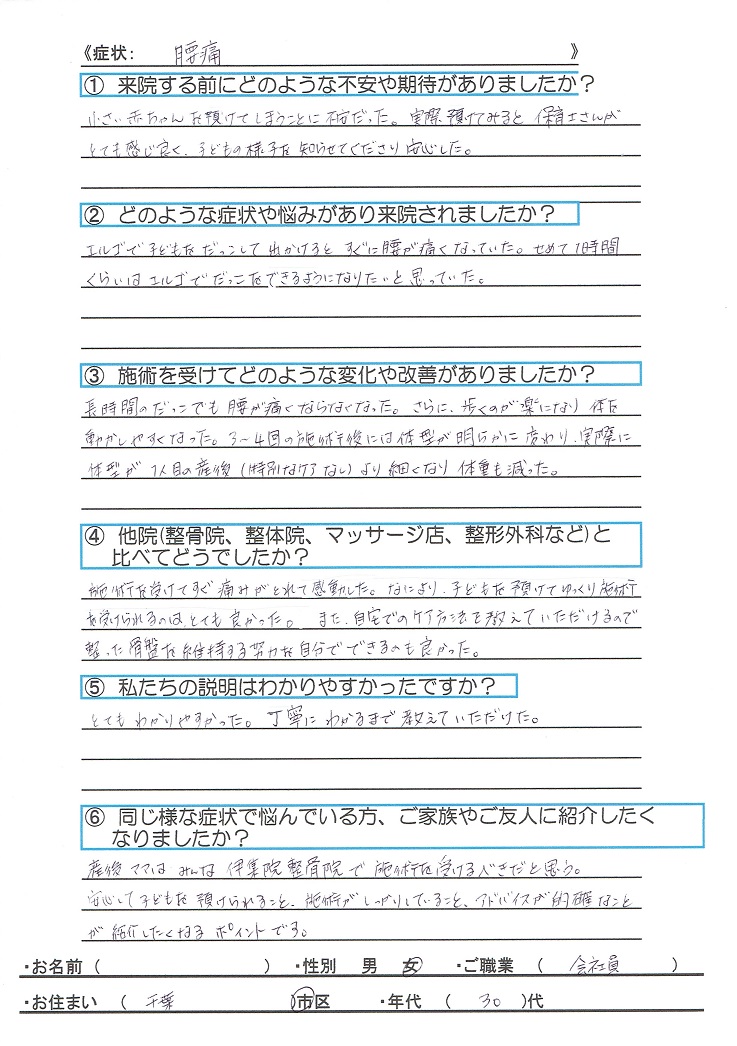 《症状: 腰痛 》
① 来院する前にどのような不安や期待がありましたか?
小さい赤ちゃんを預けてしまうことに不安だった。実際預けてみると保育士さんが
とても感じ良く、子どもの様子を知らせてくださり安心した。
② どのような症状や悩みがあり来院されましたか?
エルゴで子どもをだっこして出かけるとすぐに腰が痛くなっていた。せめて1時間
くらいはエルゴでだっこをできるようになりたいと思っていた。
③ 施術を受けてどのような変化や改善がありましたか?
長時間のだっこでも腰が痛くならなくなった。さらに、歩くのが楽になり体を
動かしやすくなった。3~4回の施術後には体型が明らかに変わり、実際に
体型が1人目の産後(特別なケアなし)より細くなり体重も減った。
④ 他院(整骨院、整体院、マッサージ店、整形外科など)と
比べてどうでしたか?
施術を受けてすぐ痛みがとれて感動した。なにより、子どもを預けてゆっくり施術
を受けられるのは、とても良かった。また、自宅でのケア方法を教えていただけるので
整った骨盤を維持する努力を自分でできるのも良かった。
⑤ 私たちの説明はわかりやすかったですか?
とてもわかりやすかった。丁寧にわかるまで教えていただけた。
⑥ 同じ様な症状で悩んでいる方、ご家族やご友人に紹介したく
なりましたか?
産後ママはみんな伊集院整骨院で施術を受けるべきだと思う。
安心して子どもを預けられること、施術がしっかりしていること、アドバイスが的確なこと
が紹介したくなるポイントです。
・お名前 ( ) ・性別 男 女 ・ご職業 ( 会社員 )
・お住まい ( 千葉 )市区 ・年代 ( 30 )代